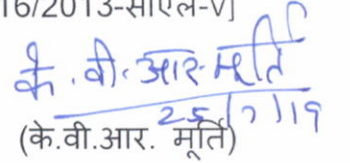 16/2013-सीएल-V]
के. वी. आर. मूर्ति
25/7/19
(के.वी.आर. मूर्ति)